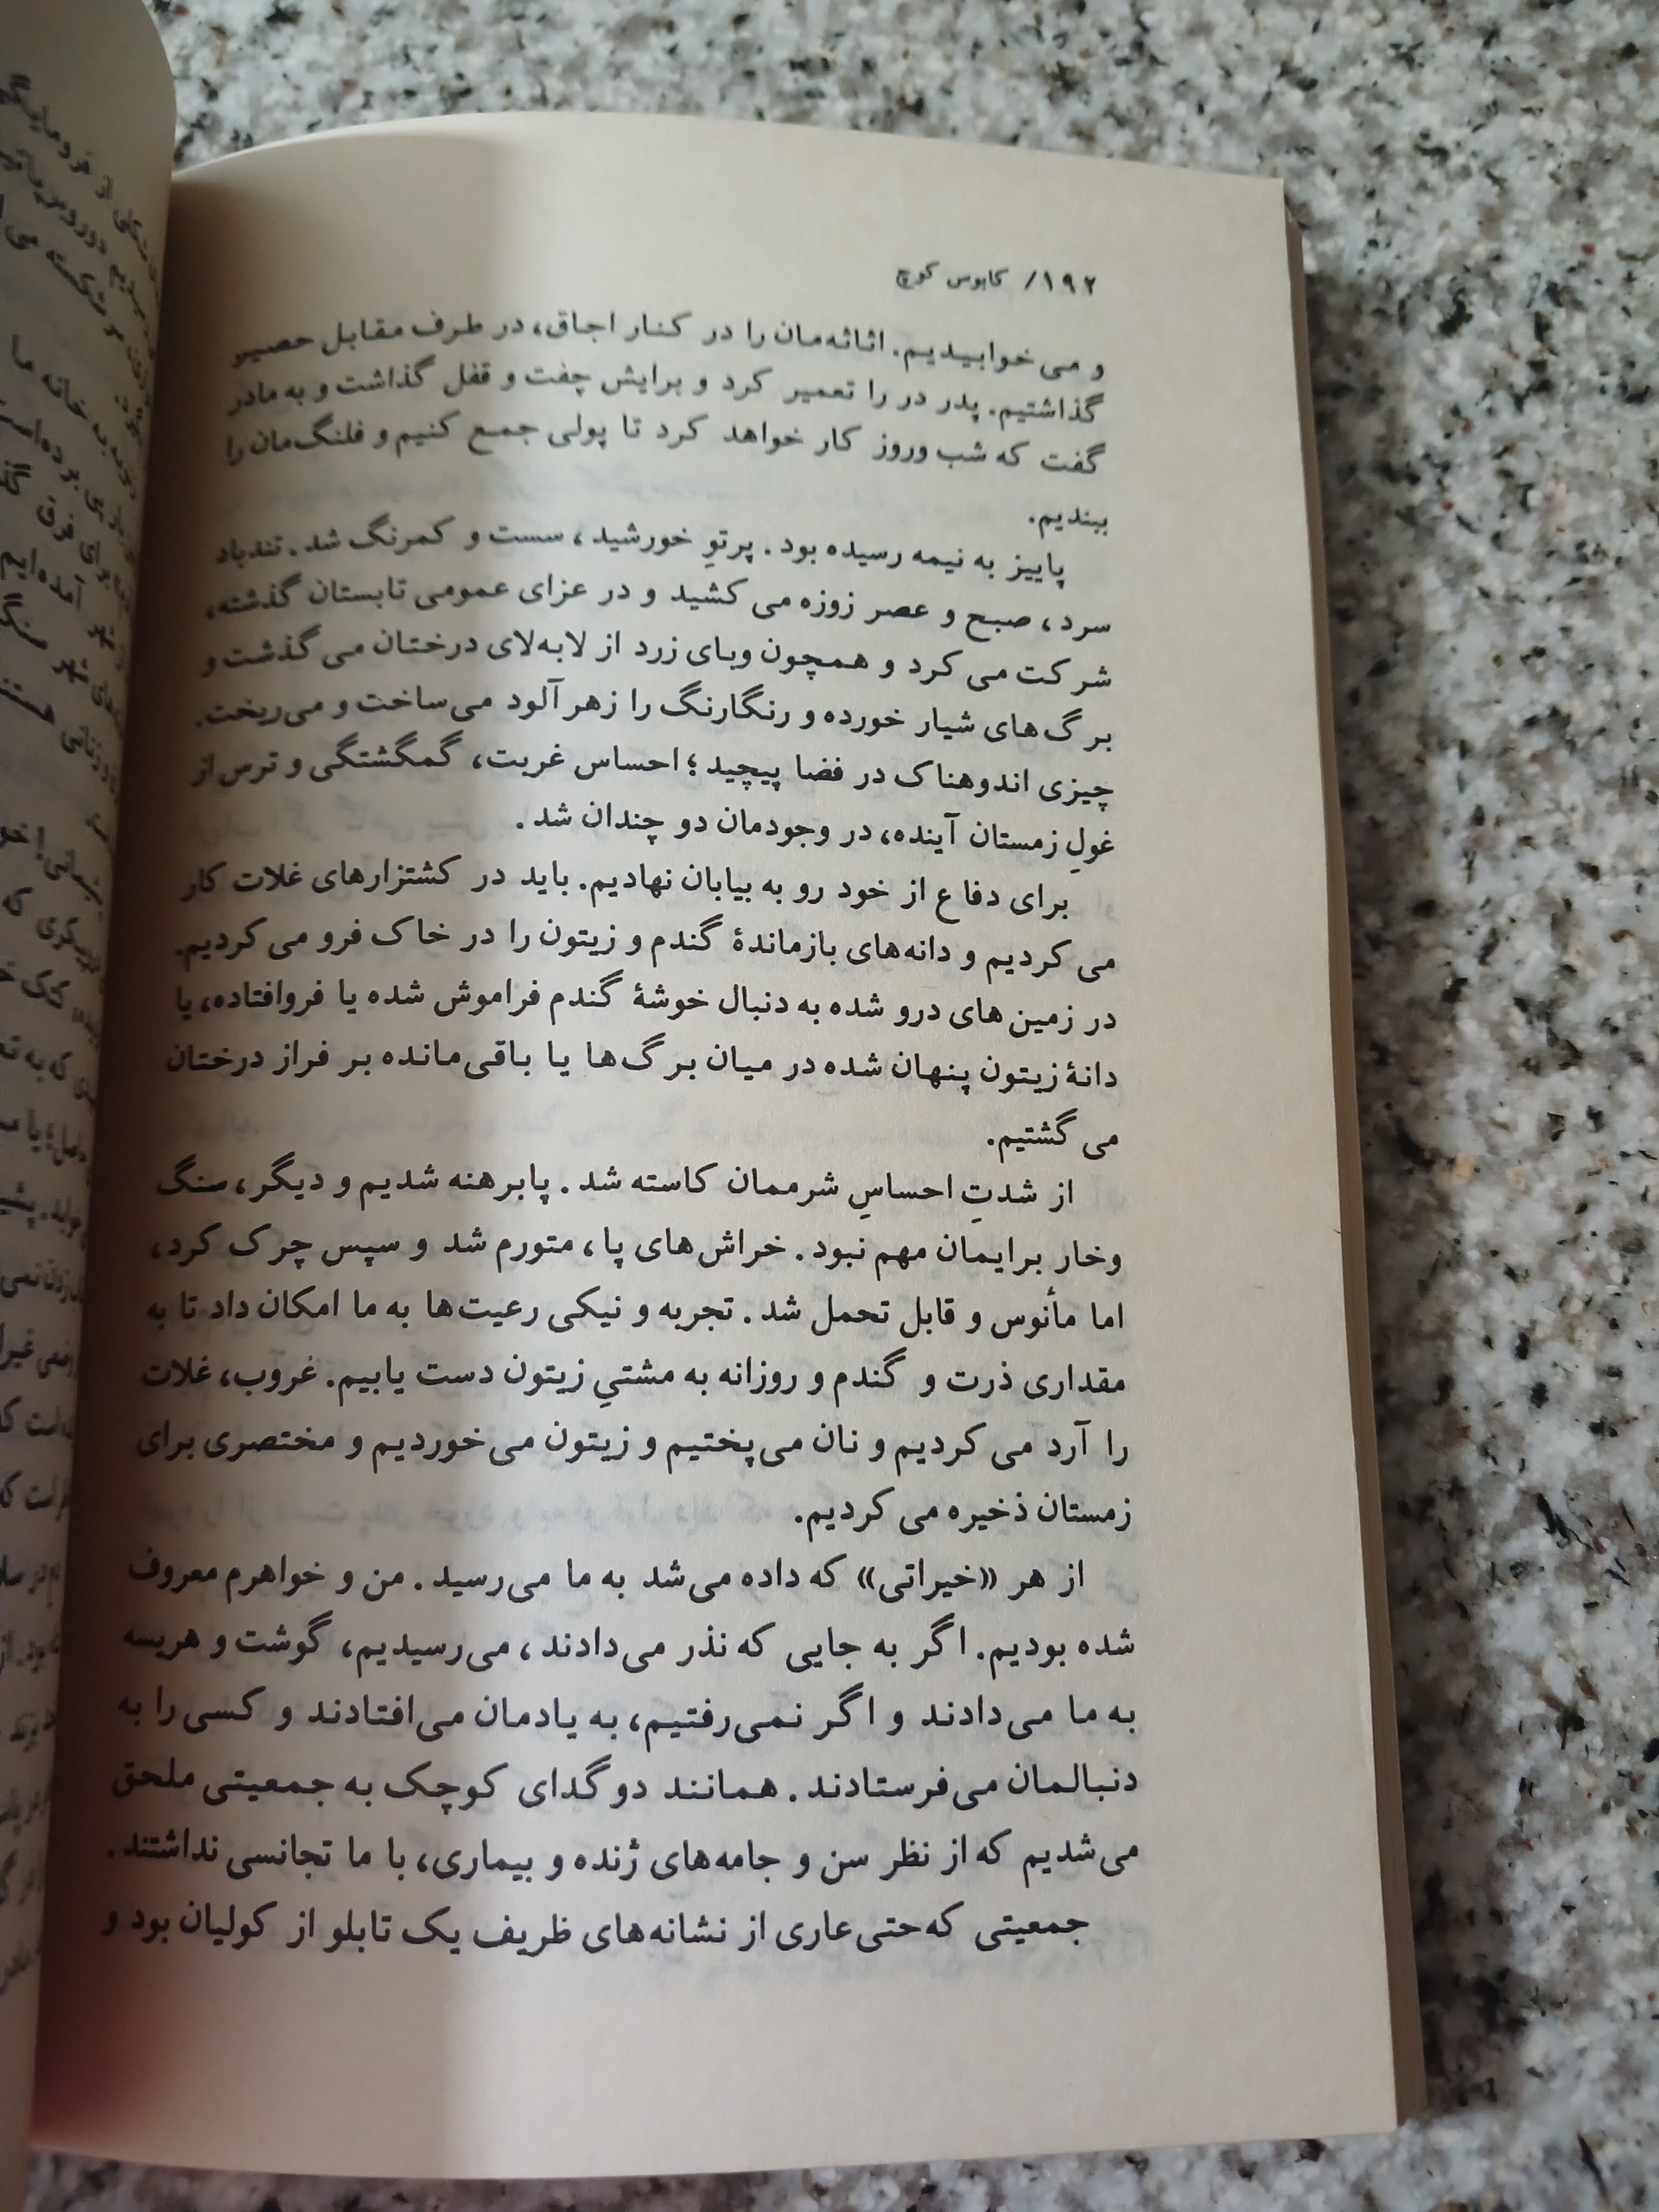 ۱۹۲/ کابوس کوچ
و می خوابیدیم. اثاثه‌مان را در کنار اجاق، در طرف مقابل حصیر
گذاشتیم. پدر در را تعمیر کرد و برایش چفت و قفل گذاشت و به مادر
گفت که شب وروز کار خواهد کرد تا پولی جمع کنیم و فلنگ‌مان را
ببندیم.
پاییز به نیمه رسیده بود. پرتوِ خورشید، سست و کمرنگ شد. تندباد
سرد، صبح و عصر زوزه می کشید و در عزای عمومی تابستان گذشته،
شرکت می کرد و همچون وبای زرد از لابه‌لای درختان می گذشت و
برگ‌های شیار خورده و رنگارنگ را زهرآلود می‌ساخت و می‌ریخت.
چیزی اندوهناک در فضا پیچید؛ احساس غربت، گمگشتگی و ترس از
غولِ زمستان آینده، در وجودمان دو چندان شد.
برای دفاع از خود رو به بیابان نهادیم. باید در کشتزارهای غلات کار
می کردیم و دانه‌های بازماندهٔ گندم و زیتون را در خاک فرو می کردیم.
در زمین های درو شده به دنبال خوشهٔ گندم فراموش شده یا فروافتاده، یا
دانهٔ زیتون پنهان شده در میان برگ‌ها یا باقی‌مانده بر فراز درختان
می گشتیم.
از شدتِ احساسِ شرممان کاسته شد. پابرهنه شدیم و دیگر، سنگ
وخار برایمان مهم نبود. خراش‌های پا، متورم شد و سپس چرک کرد،
اما مأنوس و قابل تحمل شد. تجربه و نیکی رعیت‌ها به ما امکان داد تا به
مقداری ذرت و گندم و روزانه به مشتیِ زیتون دست یابیم. غروب، غلات
را آرد می کردیم و نان می‌پختیم و زیتون می‌خوردیم و مختصری برای
زمستان ذخیره می کردیم.
از هر «خیراتی» که داده می‌شد به ما می‌رسید. من و خواهرم معروف
شده بودیم. اگر به جایی که نذر می‌دادند، می‌رسیدیم، گوشت و هریسه
به ما می‌دادند و اگر نمی‌رفتیم، به یادمان می‌افتادند و کسی را به
دنبالمان می‌فرستادند. همانند دو گدای کوچک به جمعیتی ملحق
می‌شدیم که از نظر سن و جامه‌های ژنده و بیماری، با ما تجانسی نداشتند.
جمعیتی که حتی عاری از نشانه‌های ظریف یک تابلو از کولیان بود و